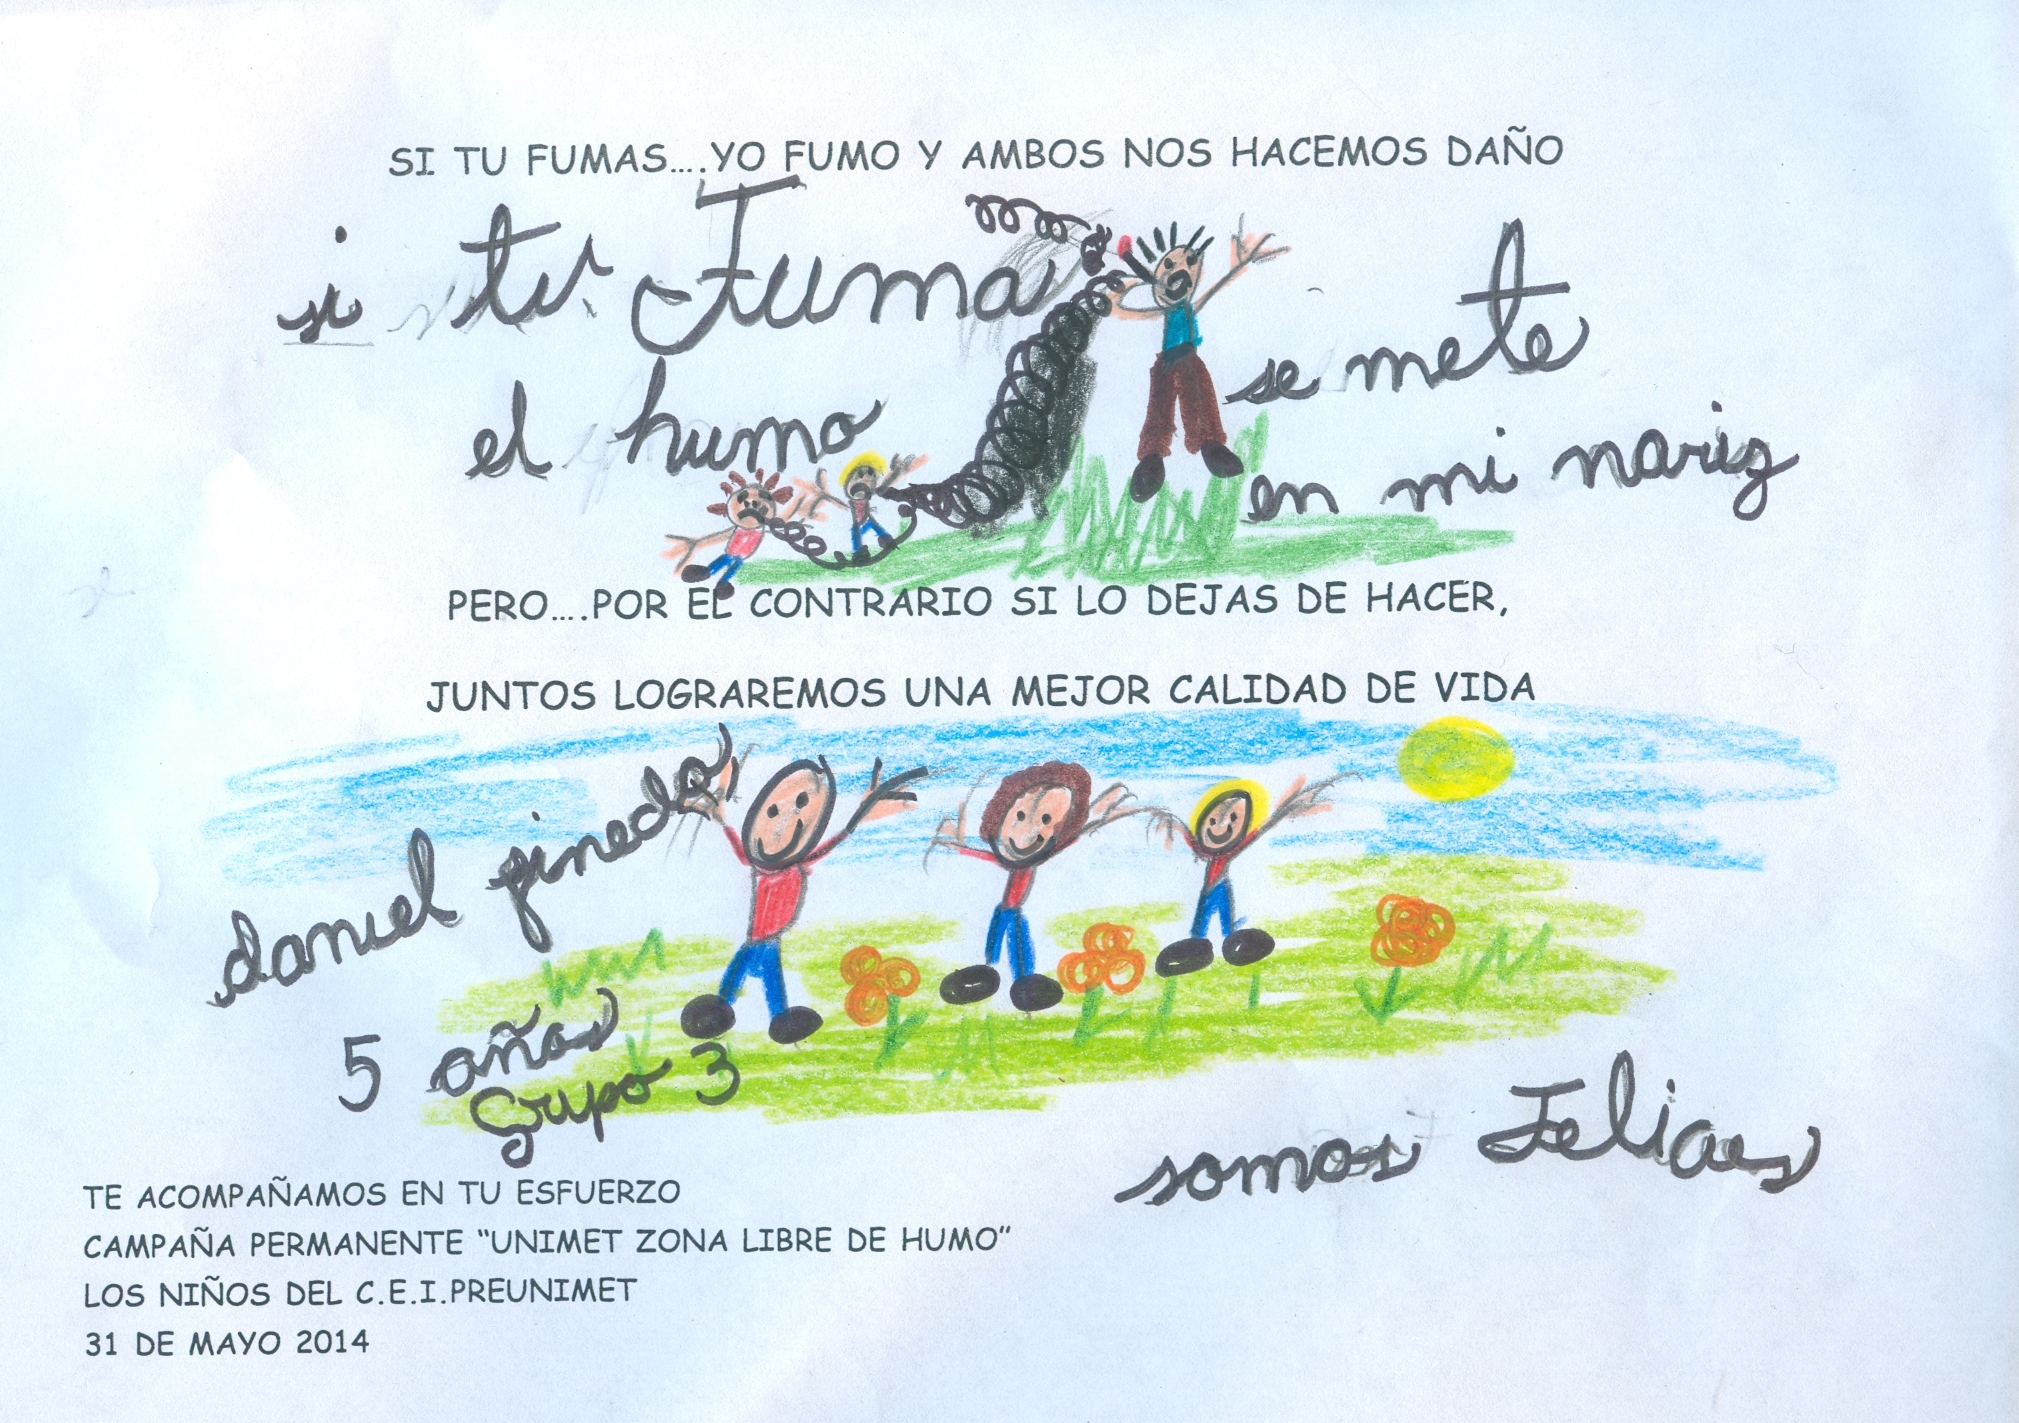 SI TU FUMAS....YO FUMO Y AMBOS NOS HACEMOS DAÑO
si tu Fuma
el humo se mete
en mi nariz
PERO....POR EL CONTRARIO SI LO DEJAS DE HACER,
JUNTOS LOGRAREMOS UNA MEJOR CALIDAD DE VIDA
daniel pineda
5 años
Grupo 3
somos Felices
TE ACOMPAÑAMOS EN TU ESFUERZO
CAMPAÑA PERMANENTE “UNIMET ZONA LIBRE DE HUMO”
LOS NIÑOS DEL C.E.I.PREUNIMET
31 DE MAYO 2014